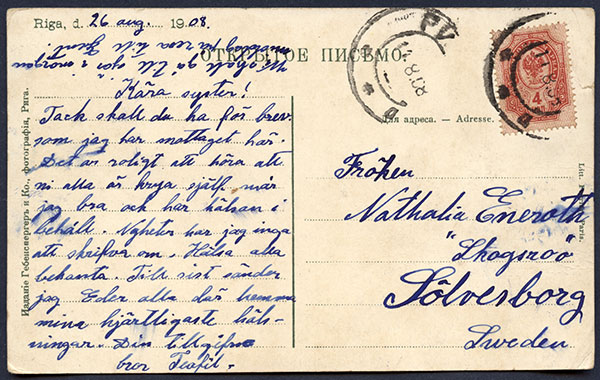 Riga, d. 26 aug. 1908.
ОТКРЫТОЕ ПИСЬМО.
Kära syster!
Tack skall du ha för brev
som jag har mottaget här.
Det är roligt att höra att
ni alla är krya själf mår
jag bra och har hälsan i
behåll. Nyheter har jag inga
att skrifva om. Hälsa alla
bekanta. Till sist sänder
jag Eder alla där hemma
mina hjärtligaste häls-
ningar. Din tillgifne
bror Teofil.
Для адреса. — Adresse.
Fröken
Nathalia Eneroth
"Skogsroo"
Sölvesborg
Sweden.
4
Издание Гебенсвергеръ и Ко., фотографія, Рига.
Paris.